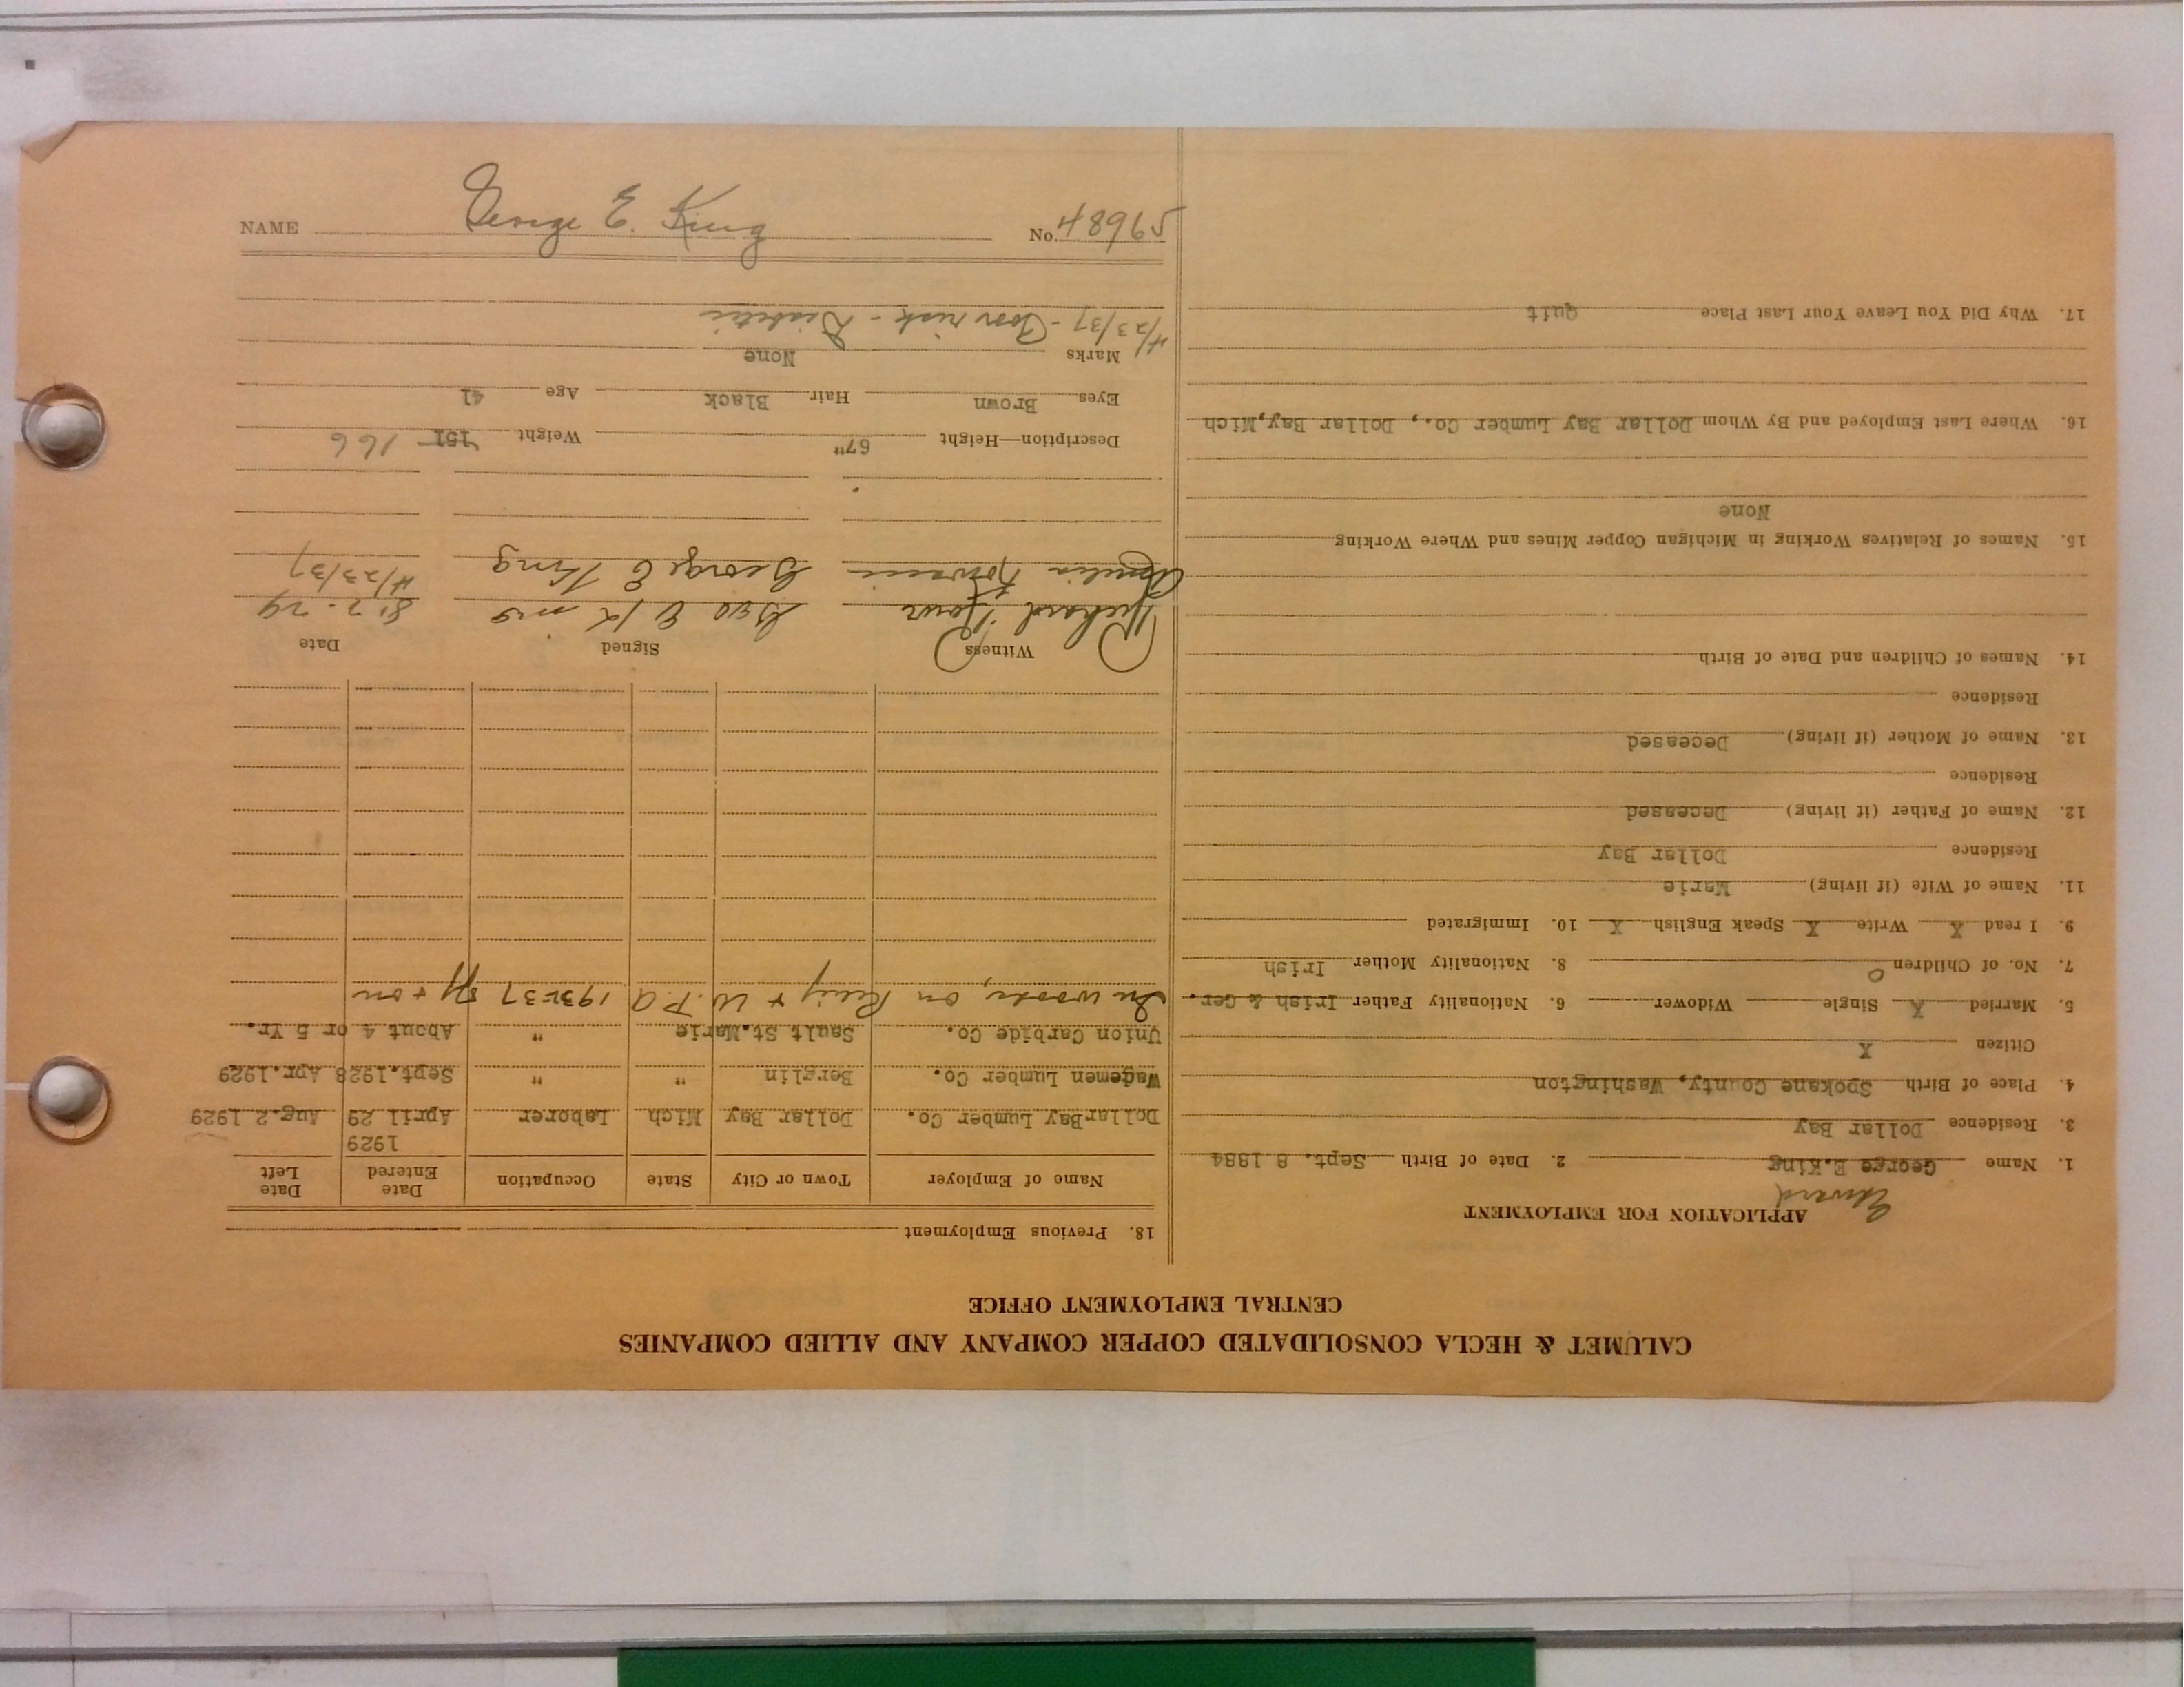 CALUMET & HECLA CONSOLIDATED COPPER COMPANY AND ALLIED COMPANIES
CENTRAL EMPLOYMENT OFFICE
APPLICATION FOR EMPLOYMENT
Edward
1. Name George E.King 2. Date of Birth Sept. 8 1884
3. Residence Dollar Bay
4. Place of Birth Spokane County, Washington
Citizen X
5. Married X Single Widower 6. Nationality Father Irish & Ger.
7. No. of Children 0 8. Nationality Mother Irish
9. I read X Write X Speak English X 10. Immigrated
11. Name of Wife (if living) Marie
Residence Dollar Bay
12. Name of Father (if living) Deceased
Residence
13. Name of Mother (if living) Deceased
Residence
14. Names of Children and Date of Birth
15. Names of Relatives Working in Michigan Copper Mines and Where Working
None
16. Where Last Employed and By Whom Dollar Bay Lumber Co., Dollar Bay,Mich
17. Why Did You Leave Your Last Place quit
18. Previous Employment
Name of Employer Town or City State Occupation Date Entered Date Left
1929
DollarBay Lumber Co. Dollar Bay Mich Laborer April 29 Aug.2 1929
Wagemen Lumber Co. Berglin " " Sept.1928 Apr.1929
Union Carbide Co. Sault St.Marie " About 4 or 5 Yr.
In woods, on & W.P.A 1931-37 off & on
Witness Signed Date
Richard Geo E King 8-2-29
Amelia George E King 4/23/37
Description—Height 67" Weight 151 166
Eyes Brown Hair Black Age 41
Marks None
4/23/37 - Poor risk - Diabetic
NAME George E. King No. 48965